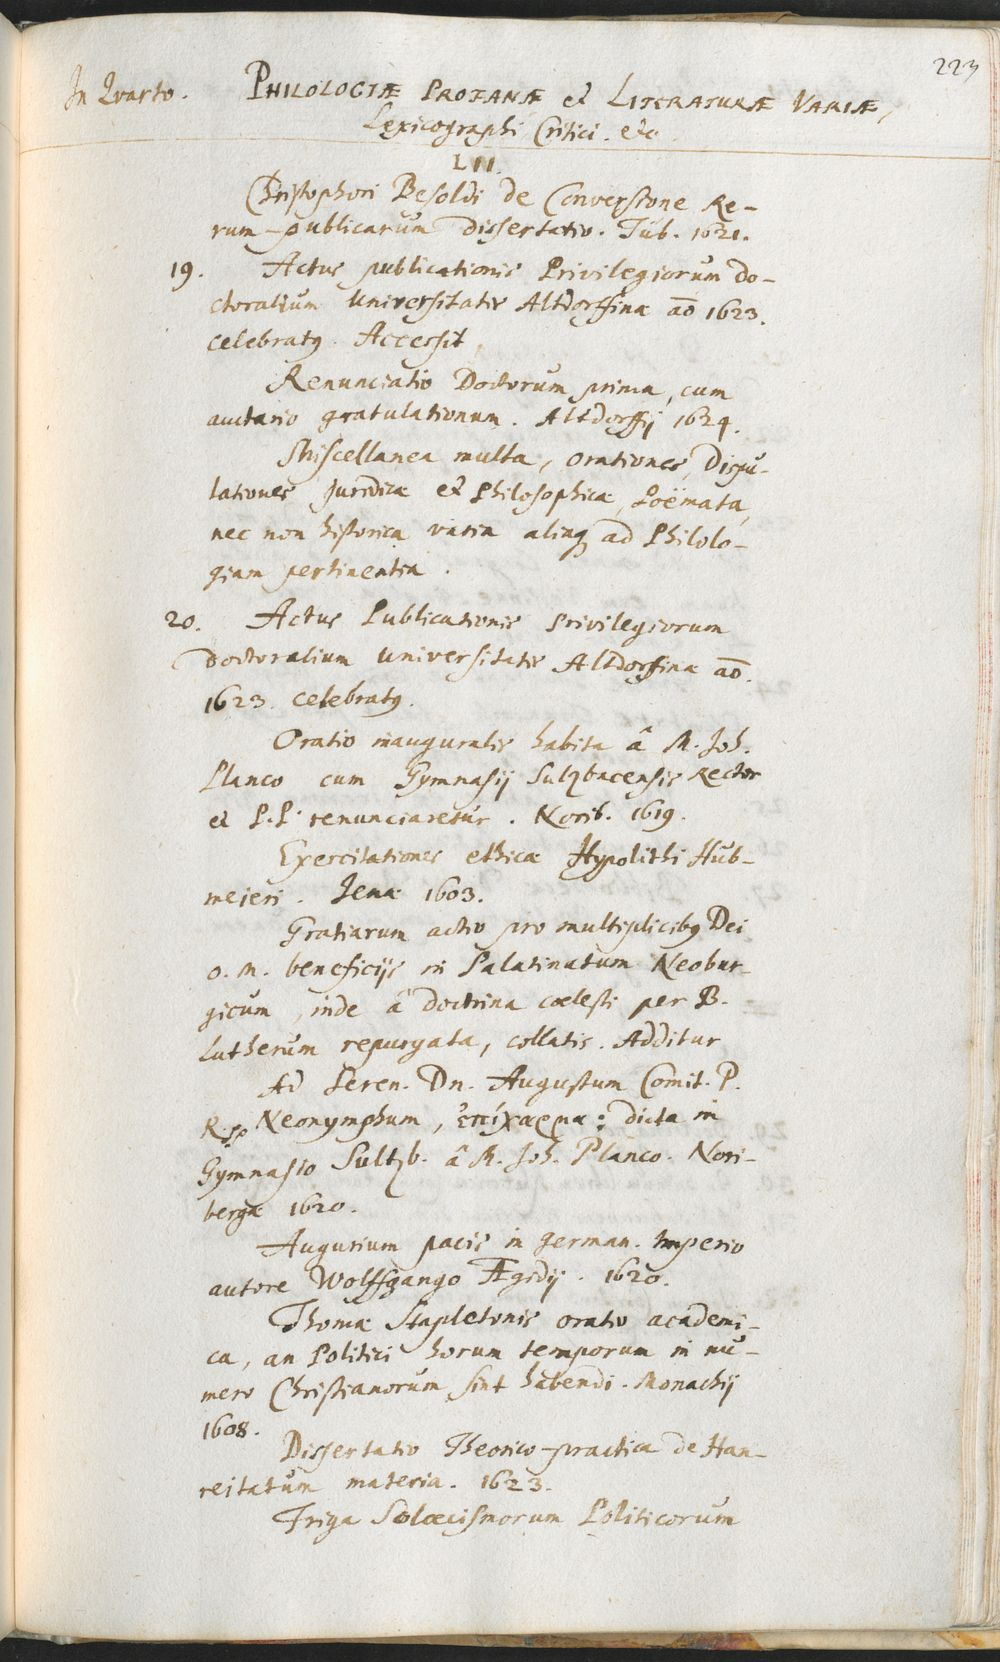 223
In Quarto. PHILOLOGIÆ PROFANÆ et LITERATURÆ VARIÆ,
Lexicographi Critici. etc.
LII.
Christophori Besoldi de Conversione Re-
rum-publicarum dissertatio. Tüb. 1621.
19. Actus publicationis Privilegiorum do-
ctoralium Universitatis Altdorffinæ aō 1623.
celebratꝰ. Accessit
Renunciatio Doctorum prima, cum
auctario gratulationum. Altdorffij 1624.
Miscellanea multa, orationes, Dispu-
tationes Juridicæ et Philosophicæ, Poëmata,
nec non historica varia aliaq ad Philolo-
giam pertinentia.
20. Actus Publicationis Privilegiorum
doctoralium Universitatis Altdorfinæ aō.
1623. celebratꝰ.
Oratio inauguralis habita â M. Joh.
Planco cum Gymnasij Sulzbacensis Rector
et P.P. renunciaretur. Norib. 1619.
Exercitationes ethicæ Hypolithi Hub-
meieri. Jenæ 1603.
Gratiarum actio pro multiplicibꝰ Dei
O. M. beneficijs in Palatinatum Neobur-
gicum, inde â doctrina cœlesti per B.
Lutherum repurgata, collatis. Additur
Ad Seren. Dn. Augustum Comit. P.
R. Neonymphum, ἐπίχαρμα: dicta in
Gymnasio Sultzb. â M. Joh. Planco. Nori-
bergæ 1620.
Augurium pacis in German. Imperio
autore Wolffgango Ægidij. 1620.
Thomæ Stapletonis oratio academi-
ca, an Politici horum temporum in nu-
mero Christianorum sint habendi. Monachij
1608.
Dissertatio Theorico-practica de Han-
reitatum materia. 1623.
Triga Solœcismorum Politicorum